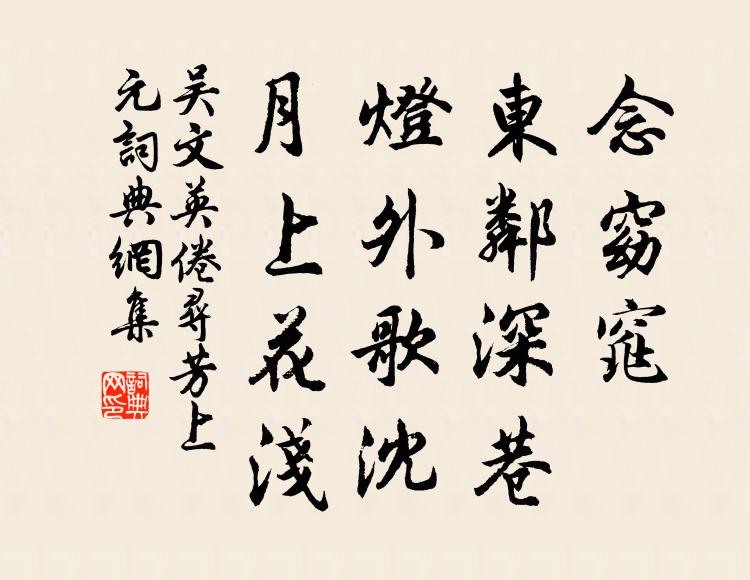 念窈窕
東鄰深巷
燈外歌沈
月上花淺
吳文英倦尋芳上
元詞典網集
詞典
网印